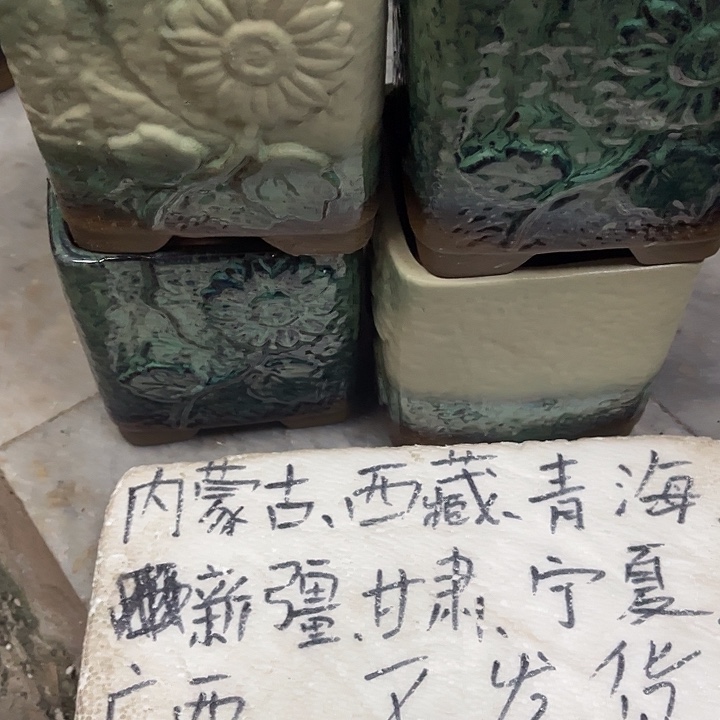 内蒙古、西藏、青海、
新疆、甘肃、宁夏、
广西 不发货